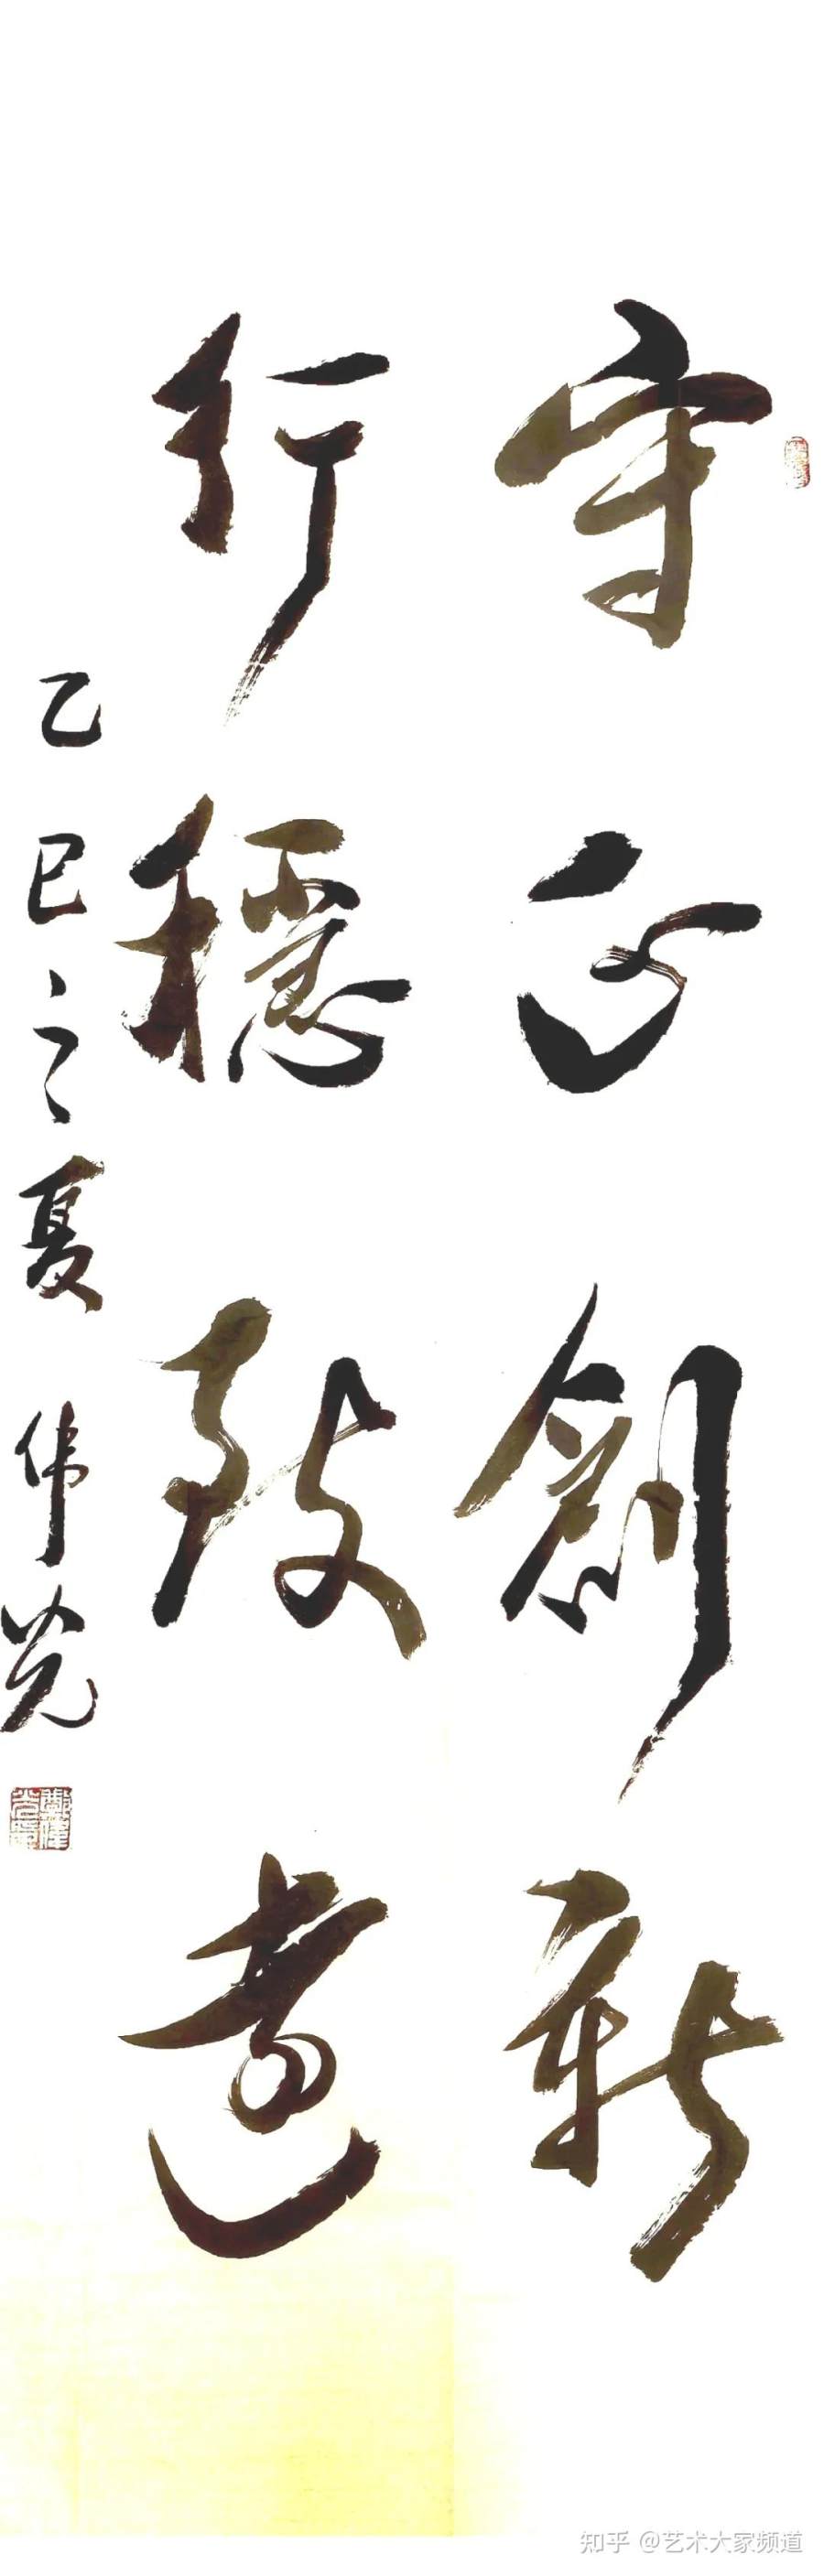 守正創新
行穩致遠
乙巳之夏 伟光
知乎 @艺术大家频道